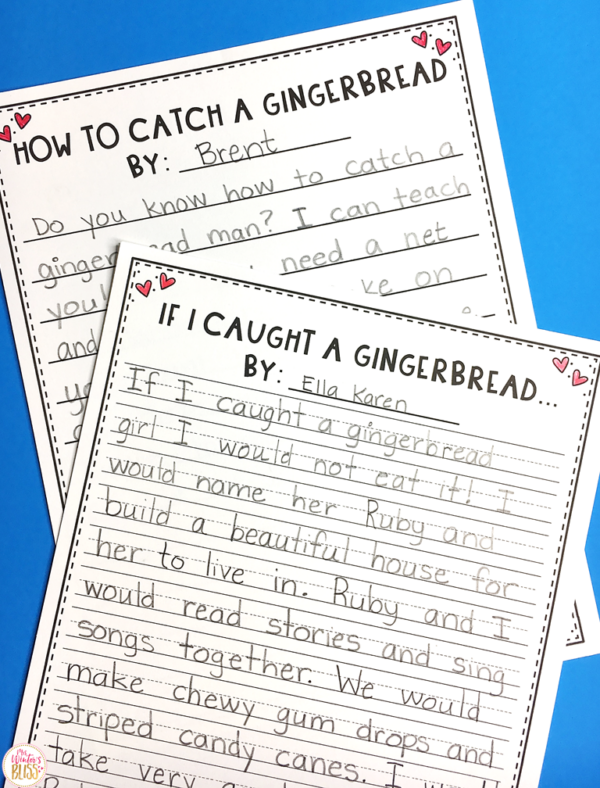 HOW TO CATCH A GINGERBREAD
BY: Brent
Do you know how to catch a
man? I can teach
need a net
on
and
IF I CAUGHT A GINGERBREAD...
BY: Ella Karen
If I caught a gingerbread
girl I would not eat it! I
would name her Ruby and
build a beautiful house for
her to live in. Ruby and I
would read stories and sing
songs together. We would
make chewy gum drops and
striped candy canes. I
take very
Mrs. Winter's
BLISS